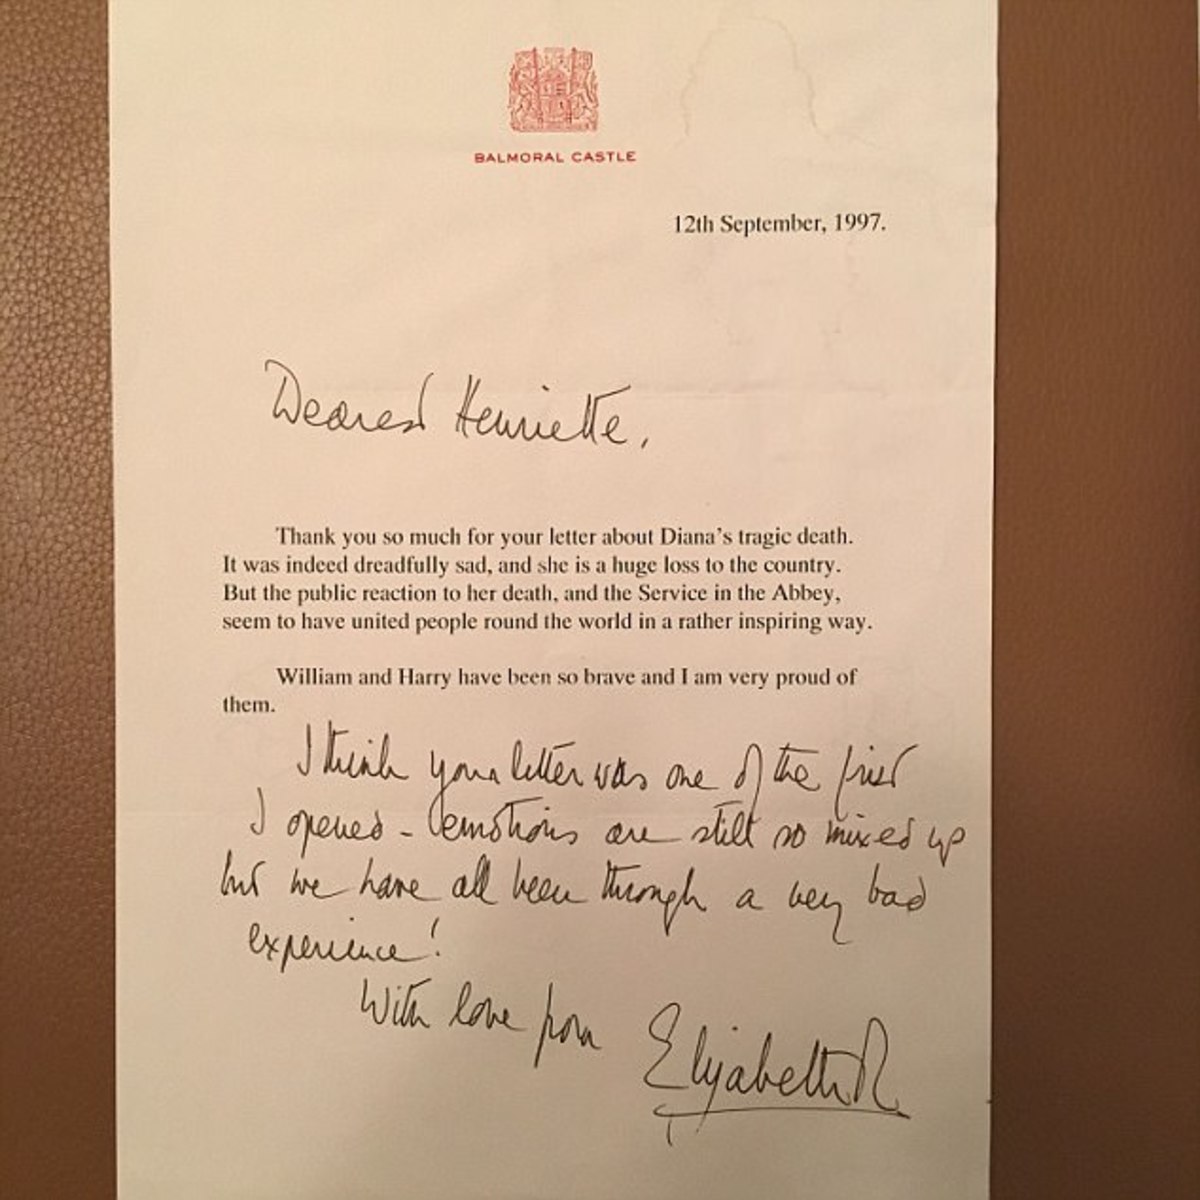 BALMORAL CASTLE
12th September, 1997.
Dearest Henriette,
Thank you so much for your letter about Diana's tragic death.
It was indeed dreadfully sad, and she is a huge loss to the country.
But the public reaction to her death, and the Service in the Abbey,
seem to have united people round the world in a rather inspiring way.
William and Harry have been so brave and I am very proud of
them.
I think your letter was one of the first
I opened - emotions are still so mixed up
but we have all been through a very bad
experience!
With love from Elizabeth R